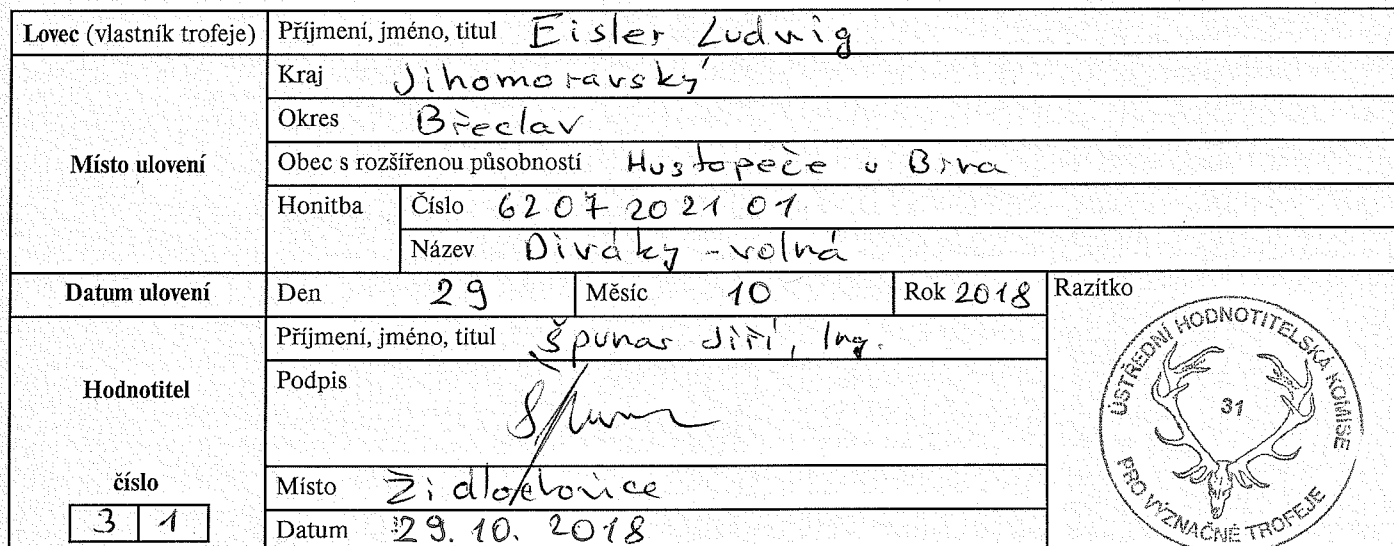 Lovec (vlastník trofeje) Příjmení, jméno, titul Eisler Ludwig
Kraj Jihomoravský
Okres Břeclav
Místo ulovení
Obec s rozšířenou působností Hustopeče u Brna
Honitba Číslo 6207202101
Název Diváky - volná
Datum ulovení Den 29 Měsíc 10 Rok 2018 Razítko
Hodnotitel
Příjmení, jméno, titul Špunar Jiří, Ing.
Podpis
číslo
31
Místo Židlochovice
Datum 29. 10. 2018
ÚSTŘEDNÍ HODNOTITELSKÁ KOMISE
31
PRO VÝZNAČNÉ TROFEJE